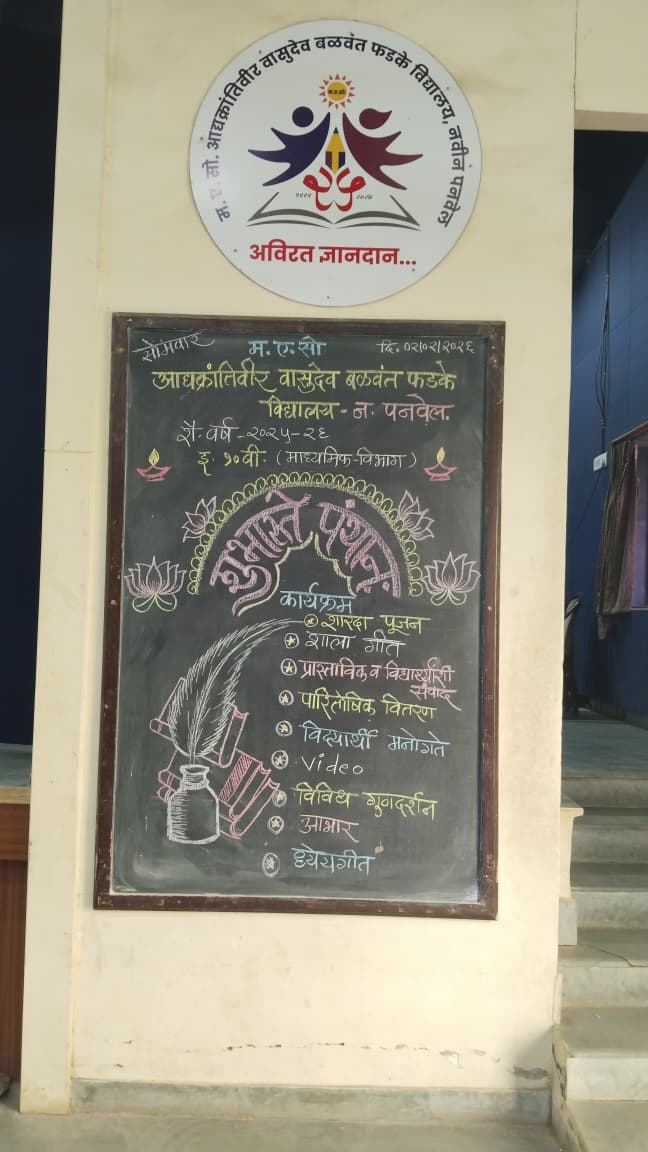 म. ए. सो. आद्यक्रांतिवीर वासुदेव बळवंत फडके विद्यालय, नवीन पनवेल
म.ए.सो.
अविरत ज्ञानदान...
सोमवार
म. ए. सो
दि. ०२/०२/२०२६
आद्यक्रांतिवीर वासुदेव बळवंत फडके
विद्यालय - न. पनवेल.
शै. वर्ष - २०२५-२६
इ. १०वी. (माध्यमिक-विभाग)
शुभास्ते पंथानः
कार्यक्रम
शारदा पूजन
शाला गीत
प्रास्ताविक व विद्यार्थ्यांशी
संवाद
पारितोषिक वितरण
विद्यार्थी मनोगते
video
विविध गुणदर्शन
आभार
ध्येयगीत